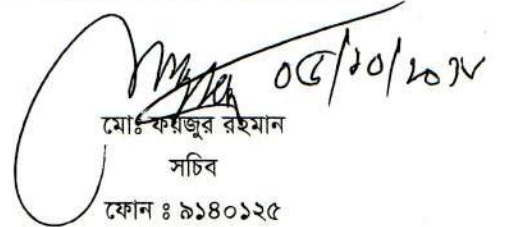 ০৫/১০/২০১৮
মোঃ ফয়জুর রহমান
সচিব
ফোন ঃ ৯১৪০১২৫